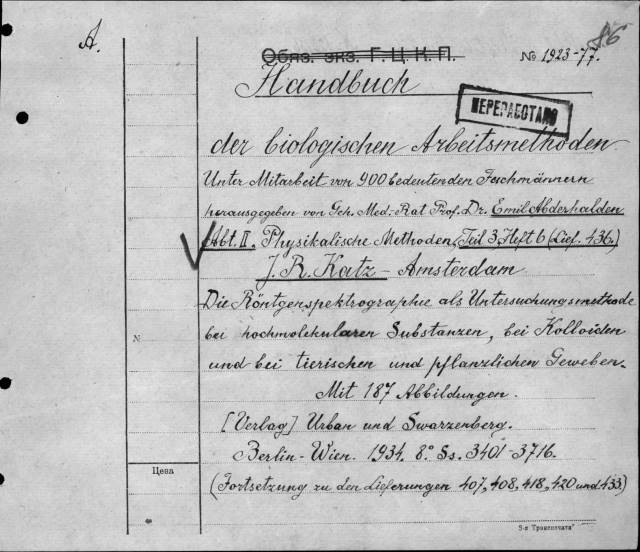 86
A.
Обяз. экз. Г.Ц.К.П.
№ 1923-77.
Handbuch
ПЕРЕРАБОТАНО
der biologischen Arbeitsmethoden
Unter Mitarbeit von 900 bedeutenden Fachmännern
herausgegeben von Geh. Med.-Rat Prof. Dr. Emil Abderhalden
Abt. II. Physikalische Methoden, Teil 3, Heft 6 (Lief. 436.)
J. R. Katz - Amsterdam
Die Röntgenspektrographie als Untersuchungsmethode
bei hochmolekularen Substanzen, bei Kolloiden
№
und bei tierischen und pflanzlichen Geweben.
Mit 187 Abbildungen.
[Verlag] Urban und Swarzenberg.
Berlin-Wien. 1934. 8° Ss. 3401-3716.
Цена
(Fortsetzung zu den Lieferungen 407, 408, 418, 420 und 433)